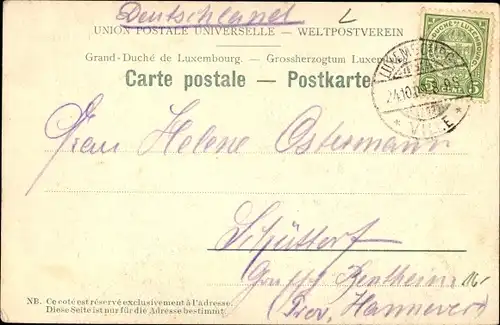 Deutschland
UNION POSTALE UNIVERSELLE – WELTPOSTVEREIN
Grand-Duché de Luxembourg. — Grossherzogtum Luxemburg
Carte postale — Postkarte
GRAND DUCHÉ DE LUXEMBOURG
5 5
LUXEMBOURG
VILLE
Frau Helene Ostermann
Schüttorf
Bentheim
(Prov. Hannover)
NB. Ce côté est réservé exclusivement à l'adresse.
Diese Seite ist nur für die Adresse bestimmt.